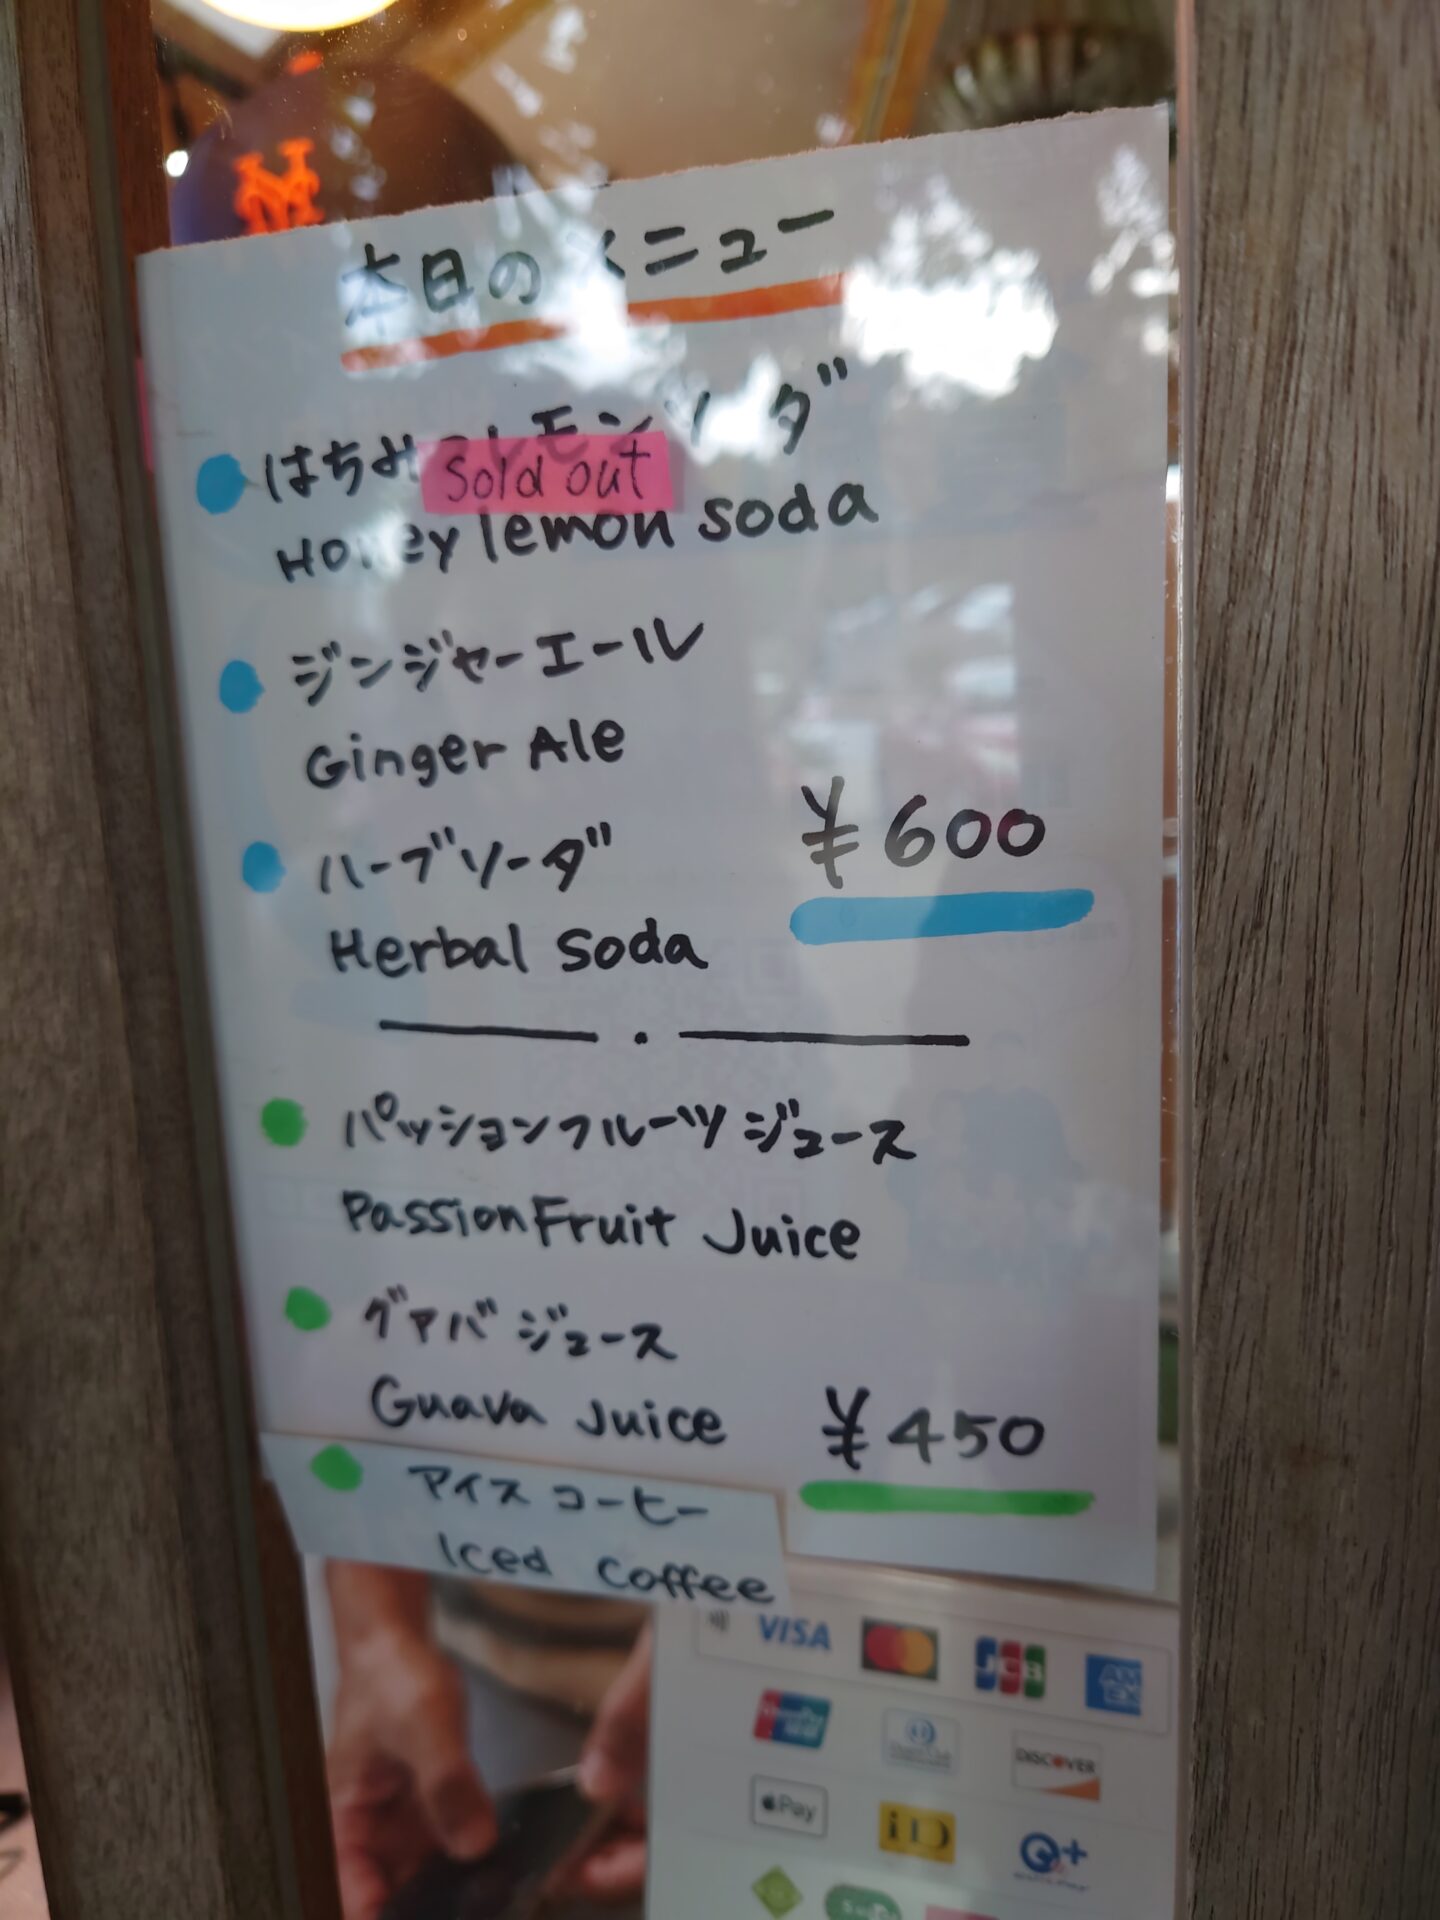 本日のメニュー
はちみつレモンソーダ
Sold out
Honey lemon soda
ジンジャーエール
Ginger Ale
ハーブソーダ
¥600
Herbal Soda
パッションフルーツジュース
Passion Fruit Juice
グァバジュース
Guava Juice
¥450
アイスコーヒー
Iced Coffee
VISA
JCB
AM
EX
UnionPay
DISCOVER
Pay
iD